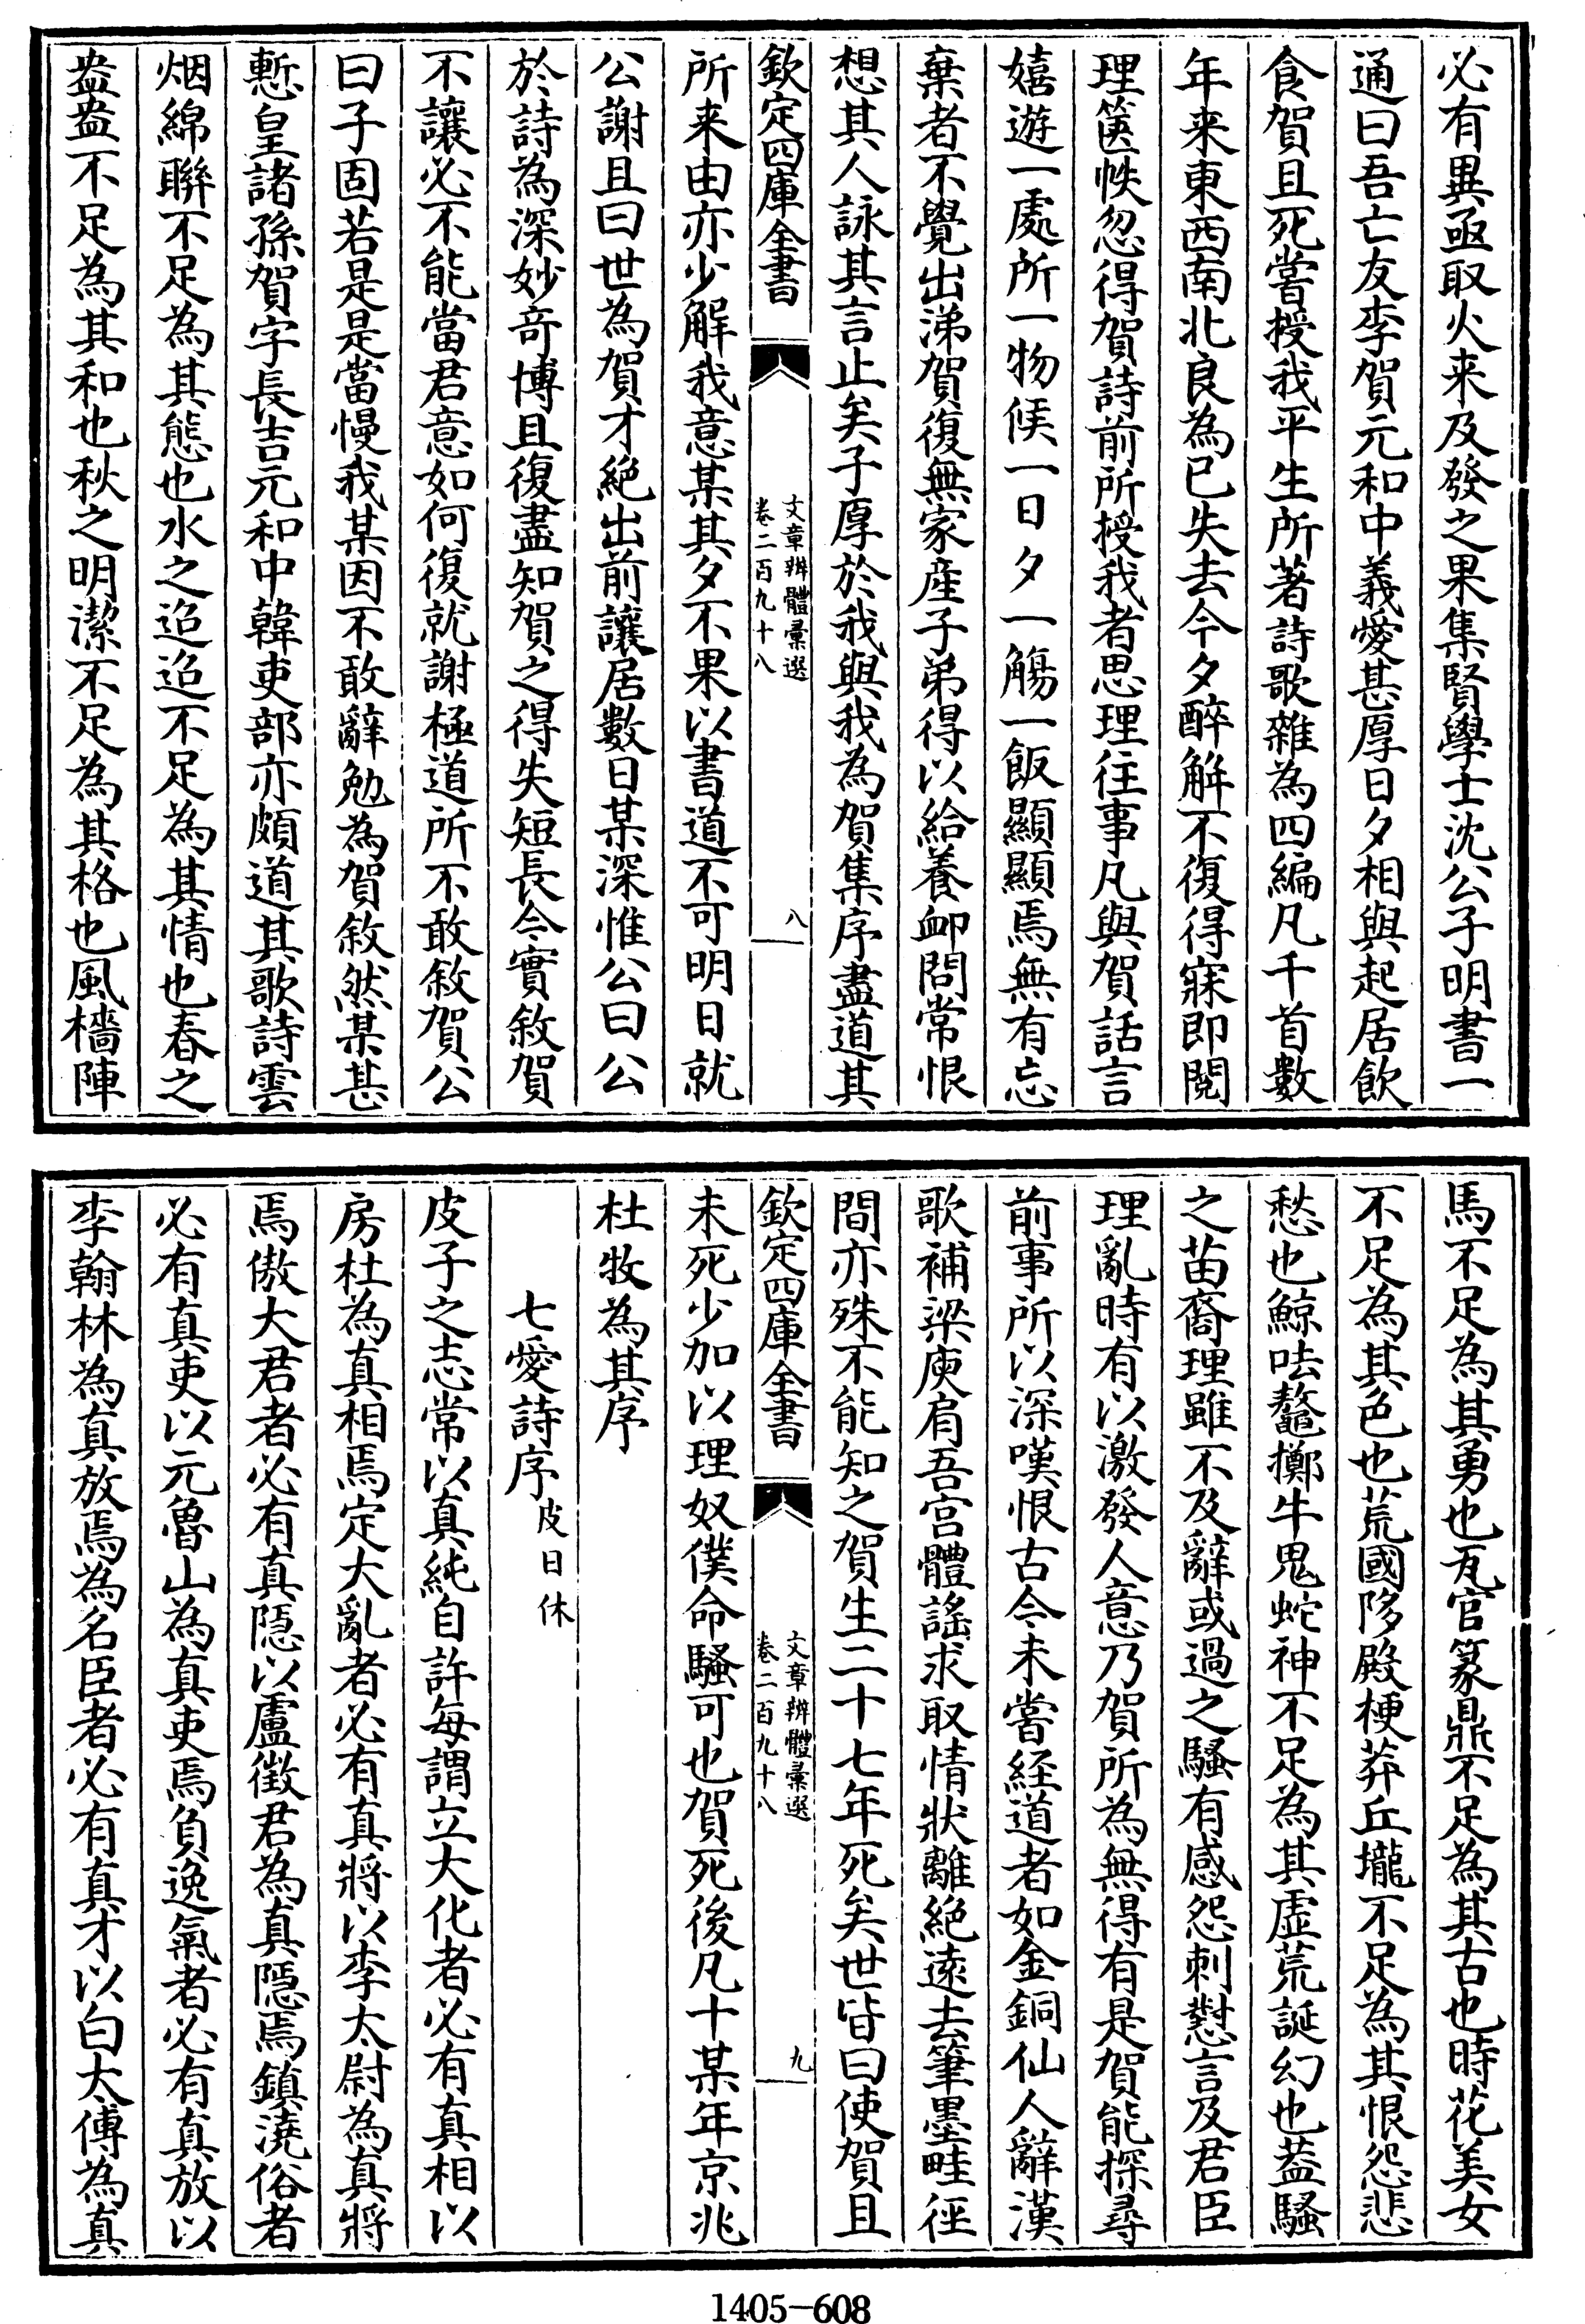 必有異亟取火来及發之果集賢學士沈公子明書一
通曰吾亡友李賀元和中義愛甚厚日夕相與起居飲
食賀且死嘗授我平生所著詩歌雜為四編凡千首數
年来東西南北良為已失去今夕醉解不復得寐即閱
理篋帙忽得賀詩前所授我者思理往事凡與賀話言
嬉遊一處所一物候一日夕一觴一飯顯顯焉無有忘
棄者不覺出涕賀復無家産子弟得以給養䘏問常恨
想其人詠其言止矣子厚於我與我為賀集序盡道其
欽定四庫全書
文章辨體彙選
卷二百九十八
八
所来由亦少解我意某其夕不果以書道不可明日就
公謝且曰世為賀才絶出前讓居數日某深惟公曰公
於詩為深妙竒博且復盡知賀之得失短長今實敘賀
不讓必不能當君意如何復就謝極道所不敢敘賀公
曰子固若是是當慢我某因不敢辭勉為賀敘然某甚
慙皇諸孫賀字長吉元和中韓吏部亦頗道其歌詩雲
烟綿聯不足為其態也水之迢迢不足為其情也春之
盎盎不足為其和也秋之明潔不足為其格也風檣陣
馬不足為其勇也瓦官篆鼎不足為其古也時花美女
不足為其色也荒國陊殿梗莽丘壠不足為其恨怨悲
愁也鯨呿鼇擲牛鬼蛇神不足為其虛荒誕幻也葢騷
之苗裔理雖不及辭或過之騷有感怨刺懟言及君臣
理亂時有以激發人意乃賀所為無得有是賀能探尋
前事所以深嘆恨古今未嘗經道者如金銅仙人辭漢
歌補梁庾肩吾宫體謠求取情狀離絶逺去筆墨畦徑
間亦殊不能知之賀生二十七年死矣世皆曰使賀且
欽定四庫全書
文章辨體彙選
卷二百九十八
九
未死少加以理奴僕命騷可也賀死後凡十某年京兆
杜牧為其序
七愛詩序 皮日休
皮子之志常以真純自許每謂立大化者必有真相以
房杜為真相焉定大亂者必有真將以李太尉為真將
焉傲大君者必有真隠以盧徵君為真隠焉鎮澆俗者
必有真吏以元魯山為真吏焉負逸氣者必有真放以
李翰林為真放焉為名臣者必有真才以白太傅為真
1405—608